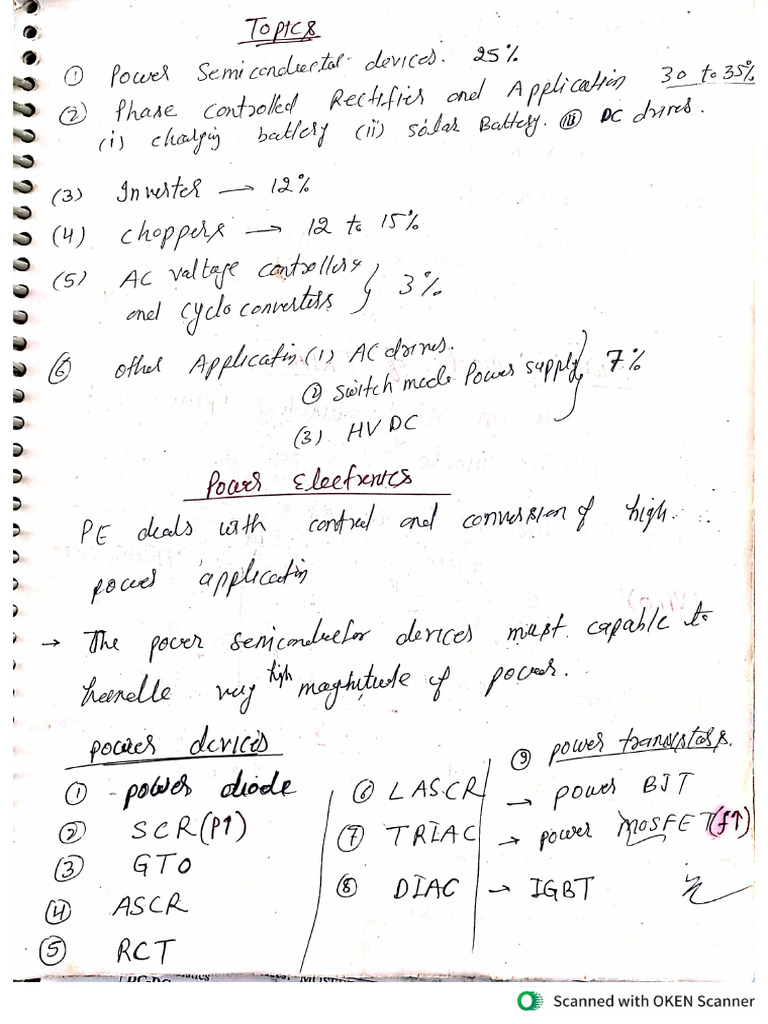 Topics
① Power Semiconductor devices. 25%
② Phase Controlled Rectifiers and Application 30 to 35%
(i) charging battery (ii) solar Battery. (iii) DC drives.
(3) Inverter → 12%
(4) choppers → 12 to 15%
(5) AC voltage controllers
and cyclo converters } 3%
⑥ other Applicatin (1) AC drives.
② Switch mode Power supply } 7%
(3) HVDC
Power Electronics
PE deals with control and conversion of high
power applicatin
→ The power semiconductor devices must capable to
handle very high magnitude of power.
power devices
① power diode
② SCR (P↑)
③ GTO
④ ASCR
⑤ RCT
⑥ LASCR
⑦ TRIAC
⑧ DIAC
⑨ power transistors.
→ power BJT
→ power MOSFET (f↑)
→ IGBT
Scanned with OKEN Scanner